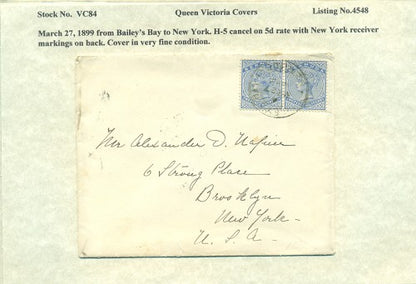 Stock No. VC84 Queen Victoria Covers Listing No.4548
March 27, 1899 from Bailey's Bay to New York. H-5 cancel on 5d rate with New York receiver
markings on back. Cover in very fine condition.
Mr Alexander D. Napier
6 Strong Place
Brooklyn
New York
U. S. A.